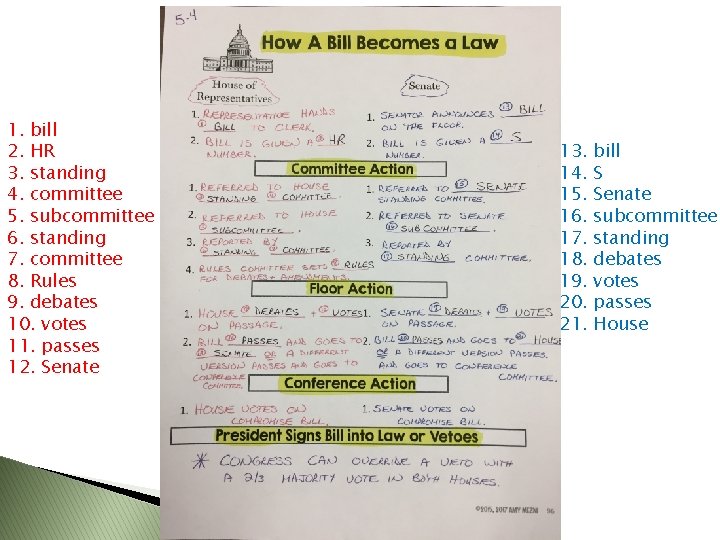 1. bill
2. HR
3. standing
4. committee
5. subcommittee
6. standing
7. committee
8. Rules
9. debates
10. votes
11. passes
12. Senate
5-4
How A Bill Becomes a Law
House of
Representatives
1. REPRESENTATIVE HANDS
① BILL TO CLERK.
2. BILL IS GIVEN A ② HR
NUMBER.
Senate
1. SENATOR ANNOUNCES ⑬ BILL
ON THE FLOOR.
2. BILL IS GIVEN A ⑭ S
NUMBER.
Committee Action
1. REFERRED TO HOUSE
③ STANDING ④ COMMITTEE.
2. REFERRED TO HOUSE
⑤ SUBCOMMITTEE.
3. REPORTED BY
⑥ STANDING ⑦ COMMITTEE.
4. RULES COMMITTEE SETS ⑧ RULES
FOR DEBATES + AMENDMENTS.
1. REFERRED TO ⑮ SENATE
STANDING COMMITTEE.
2. REFERRED TO SENATE
⑯ SUBCOMMITTEE.
3. REPORTED BY
⑰ STANDING COMMITTEE.
Floor Action
1. HOUSE ⑨ DEBATES + ⑩ VOTES
ON PASSAGE.
2. BILL ⑪ PASSES AND GOES TO
⑫ SENATE OR A DIFFERENT
VERSION PASSES AND GOES TO
CONFERENCE
COMMITTEE.
1. SENATE ⑱ DEBATES + ⑲ VOTES
ON PASSAGE.
2. BILL ⑳ PASSES AND GOES TO ㉑ HOUSE
OR A DIFFERENT VERSION PASSES
AND GOES TO CONFERENCE
COMMITTEE.
Conference Action
1. HOUSE VOTES ON
COMPROMISE BILL.
1. SENATE VOTES ON
COMPROMISE BILL.
President Signs Bill into Law or Vetoes
* CONGRESS CAN OVERRIDE A VETO WITH
A 2/3 MAJORITY VOTE IN BOTH HOUSES.
©2015, 2017 AMY MEZNI 96
13. bill
14. S
15. Senate
16. subcommittee
17. standing
18. debates
19. votes
20. passes
21. House